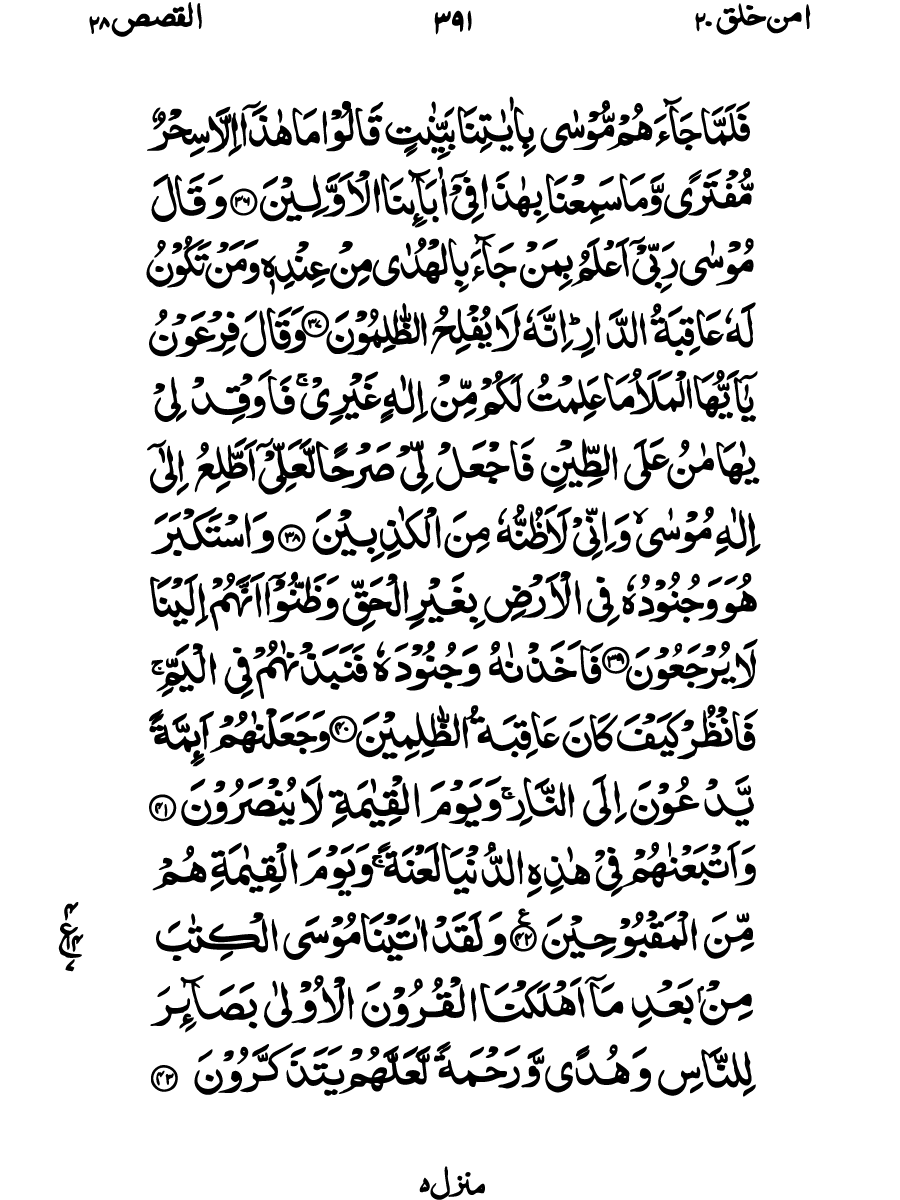 امن خلق ۲۰ ۳۹۱ القصص ۲۸
فَلَمَّا جَآءَ هُمْ مُّوْسٰی بِاٰيٰتِنَا بَيِّنٰتٍ قَالُوْا مَا هٰذَآ اِلَّا سِحْرٌ
مُّفْتَرًی وَّمَا سَمِعْنَا بِهٰذَا فِیْۤ اٰبَآئِنَا الْاَوَّلِيْنَ ۳۶ وَ قَالَ
مُوْسٰی رَبِّیْۤ اَعْلَمُ بِمَنْ جَآءَ بِالْهُدٰی مِنْ عِنْدِهٖ وَمَنْ تَكُوْنُ
لَهٗ عَاقِبَةُ الدَّارِ ؕ اِنَّهٗ لَا يُفْلِحُ الظّٰلِمُوْنَ ۳۷ وَقَالَ فِرْعَوْنُ
يٰۤاَيُّهَا الْمَلَاُ مَا عَلِمْتُ لَكُمْ مِّنْ اِلٰهٍ غَيْرِیْ ۚ فَاَوْقِدْ لِیْ
يٰهَامٰنُ عَلَی الطِّيْنِ فَاجْعَلْ لِّیْ صَرْحًا لَّعَلِّیْۤ اَطَّلِعُ اِلٰۤی
اِلٰهِ مُوْسٰی ۙ وَاِنِّیْ لَاَظُنُّهٗ مِنَ الْكٰذِبِيْنَ ۳۸ وَاسْتَكْبَرَ
هُوَ وَجُنُوْدُهٗ فِی الْاَرْضِ بِغَيْرِ الْحَقِّ وَظَنُّوْۤا اَنَّهُمْ اِلَيْنَا
لَا يُرْجَعُوْنَ ۳۹ فَاَخَذْنٰهُ وَجُنُوْدَهٗ فَنَبَذْنٰهُمْ فِی الْيَمِّ ۚ
فَانْظُرْ كَيْفَ كَانَ عَاقِبَةُ الظّٰلِمِيْنَ ۴۰ وَجَعَلْنٰهُمْ اَئِمَّةً
يَّدْعُوْنَ اِلَی النَّارِ ۚ وَيَوْمَ الْقِيٰمَةِ لَا يُنْصَرُوْنَ ۴۱
وَاَتْبَعْنٰهُمْ فِیْ هٰذِهِ الدُّنْيَا لَعْنَةً ۚ وَيَوْمَ الْقِيٰمَةِ هُمْ
مِّنَ الْمَقْبُوْحِيْنَ ۴۲ ع وَلَقَدْ اٰتَيْنَا مُوْسَی الْكِتٰبَ
۴ ع ۱۴ ۷
مِنْۢ بَعْدِ مَاۤ اَهْلَكْنَا الْقُرُوْنَ الْاُوْلٰی بَصَآئِرَ
لِلنَّاسِ وَهُدًی وَّرَحْمَةً لَّعَلَّهُمْ يَتَذَكَّرُوْنَ ۴۳
منزل ۵